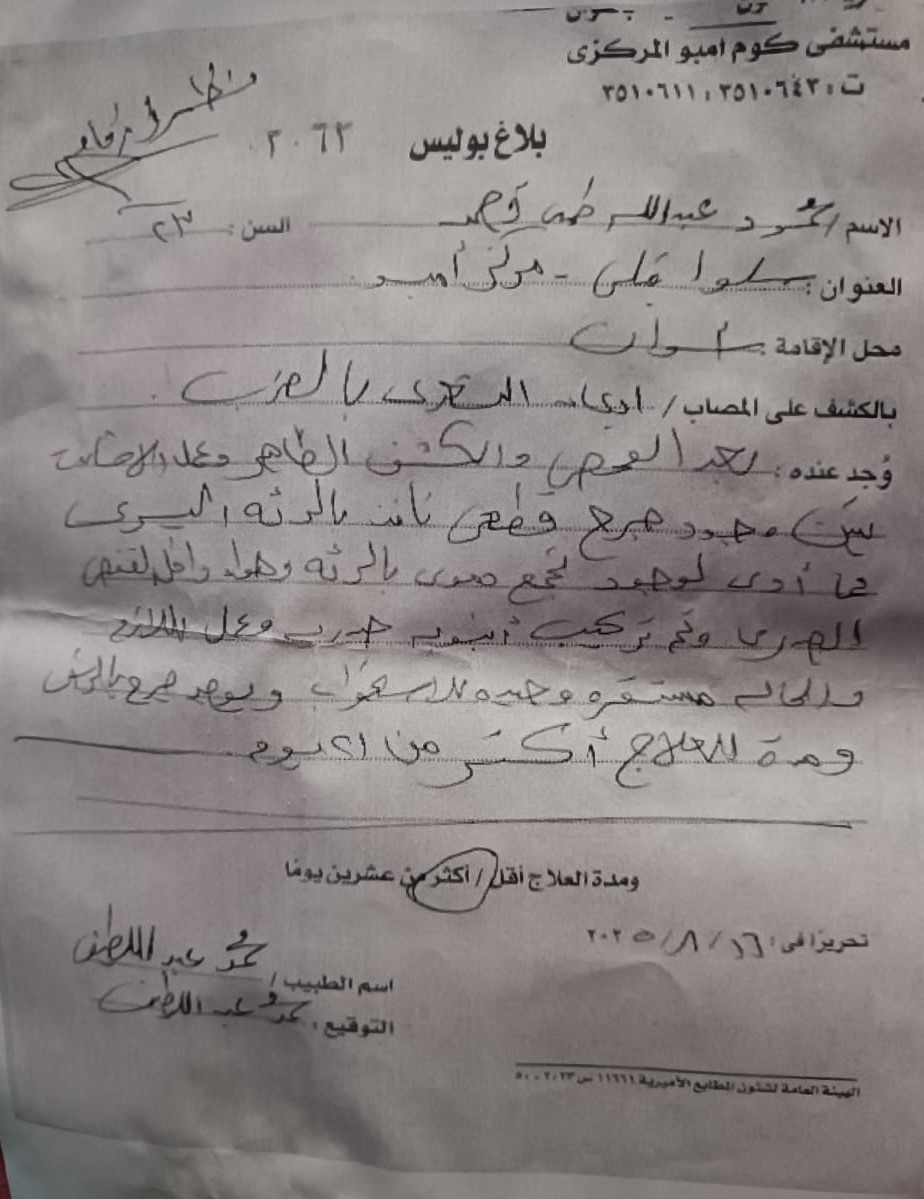 مستشفى كوم أمبو المركزى
ت : ٣٥١٠٦٤٣ ، ٣٥١٠٦١١
بلاغ بوليس ٢٠٦٢
الاسم / محمود عبدالله
السن : ٢٣
العنوان : سلوا قبلى - مركز أمبو
محل الإقامة : أسوان
بالكشف على المصاب / ادعاء التعدى بالضرب
وُجد عنده : بعد الفحص والكشف الظاهر وعمل الاشاعات
تبين وجود جرح قطعى نافذ بالرئه اليسرى
مما أدى لوجود تجمع دموى بالرئه وهواء داخل القفص
الصدرى وتم تركيب أنبوبه صدريه وعمل اللازم
والحاله مستقره وجيده للاستجواب ويوجد جرح
ومدة العلاج أكثر من ٢١ يوم
ومدة العلاج أقل / أكثر من عشرين يومًا
تحريرًا فى : ١٦ / ٨ / ٢٠٢٥
اسم الطبيب / محمد عبد اللطيف
التوقيع : محمد عبد اللطيف
الهيئة العامة لشئون المطابع الأميرية ١١٦٦١ س ٢٠٢٣ - ٥٠